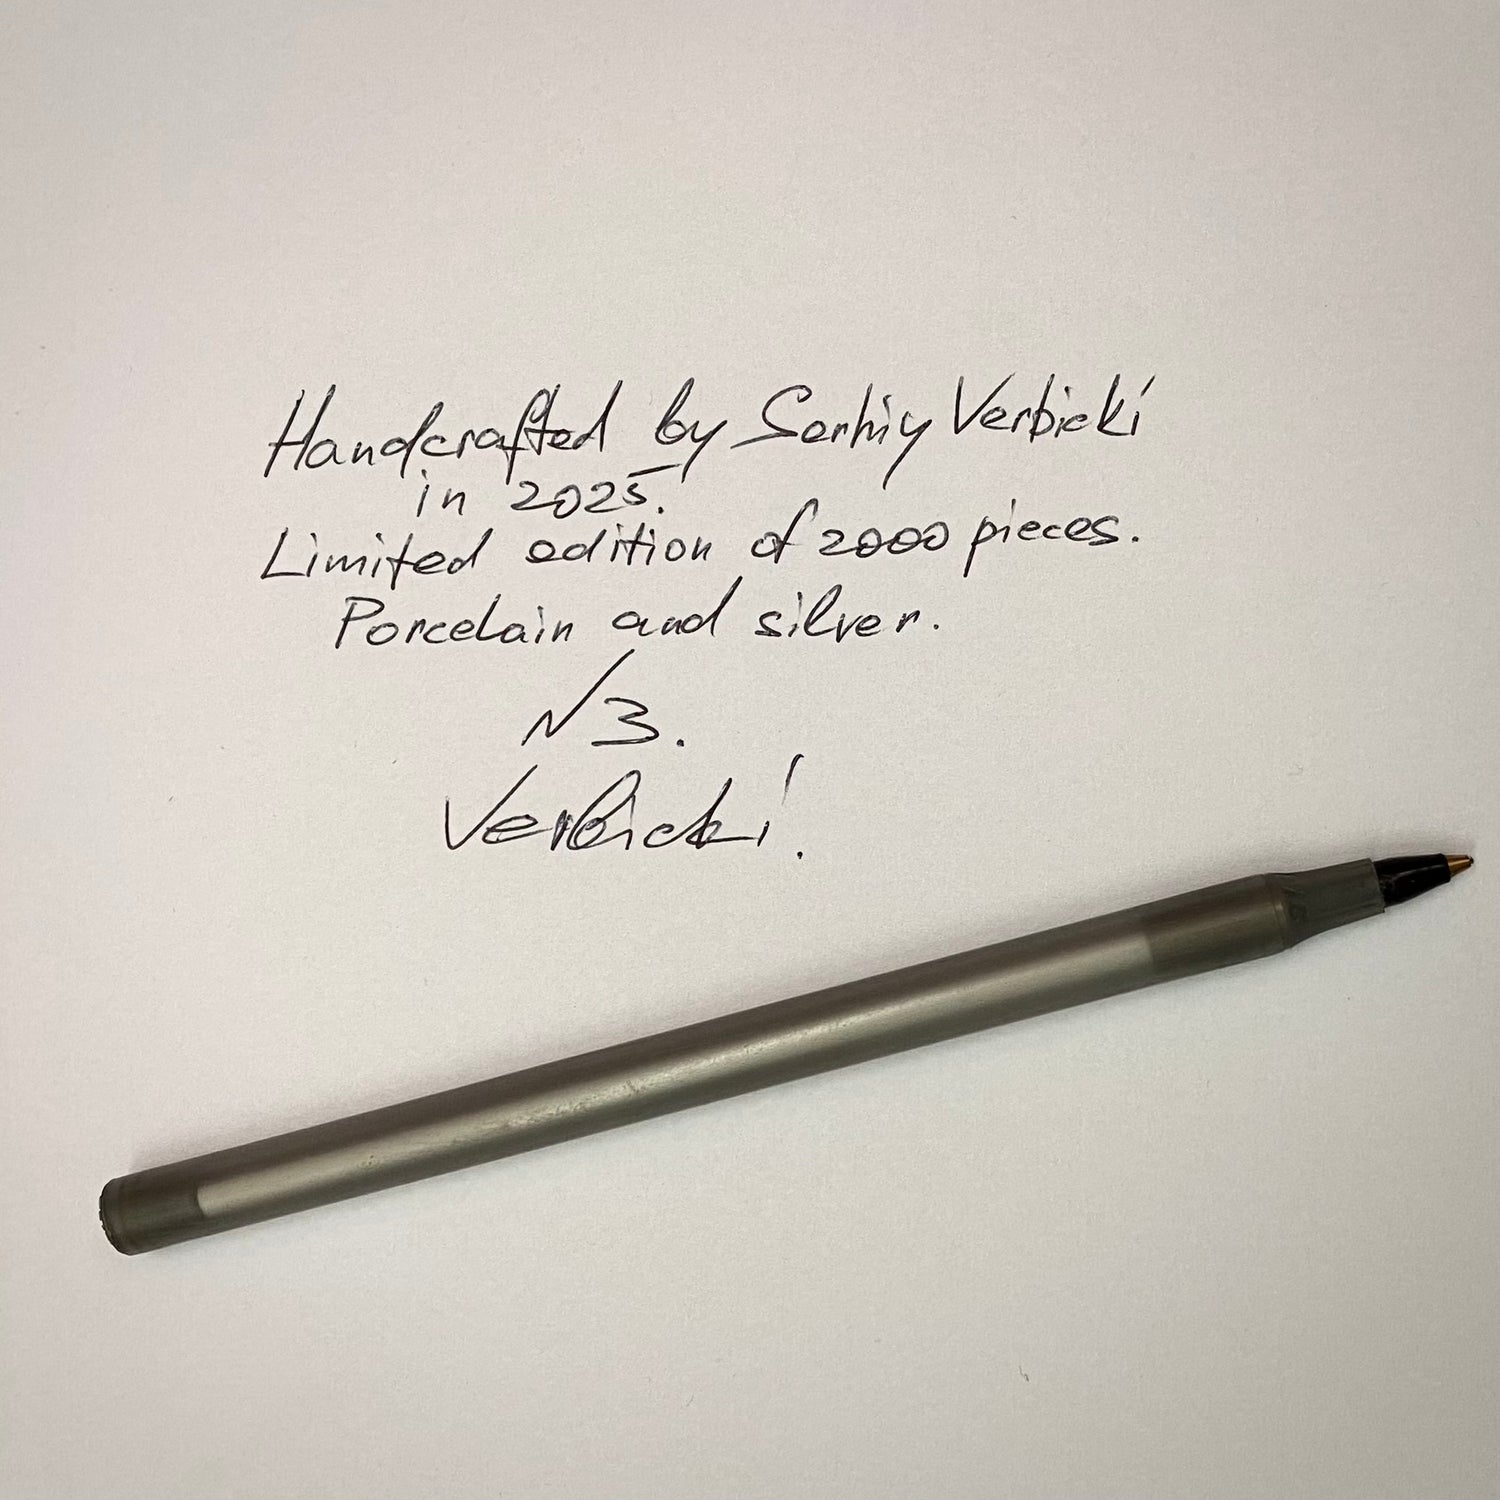 Handcrafted by Serhiy Verbicki
in 2025.
Limited edition of 2000 pieces.
Porcelain and silver.
N3.
Verbicki.